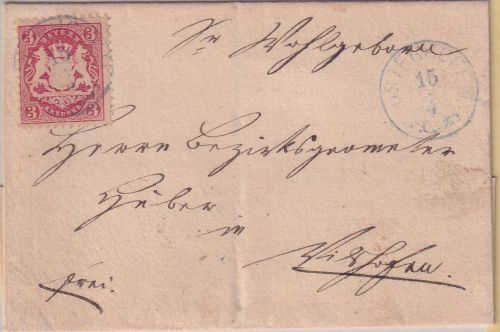 BAYERN
3 3
3 KREUZER 3
Sr Wohlgeborn
15
4
Herrn Bezirksgeometer
Huber
in
Vilshofen.
frei.